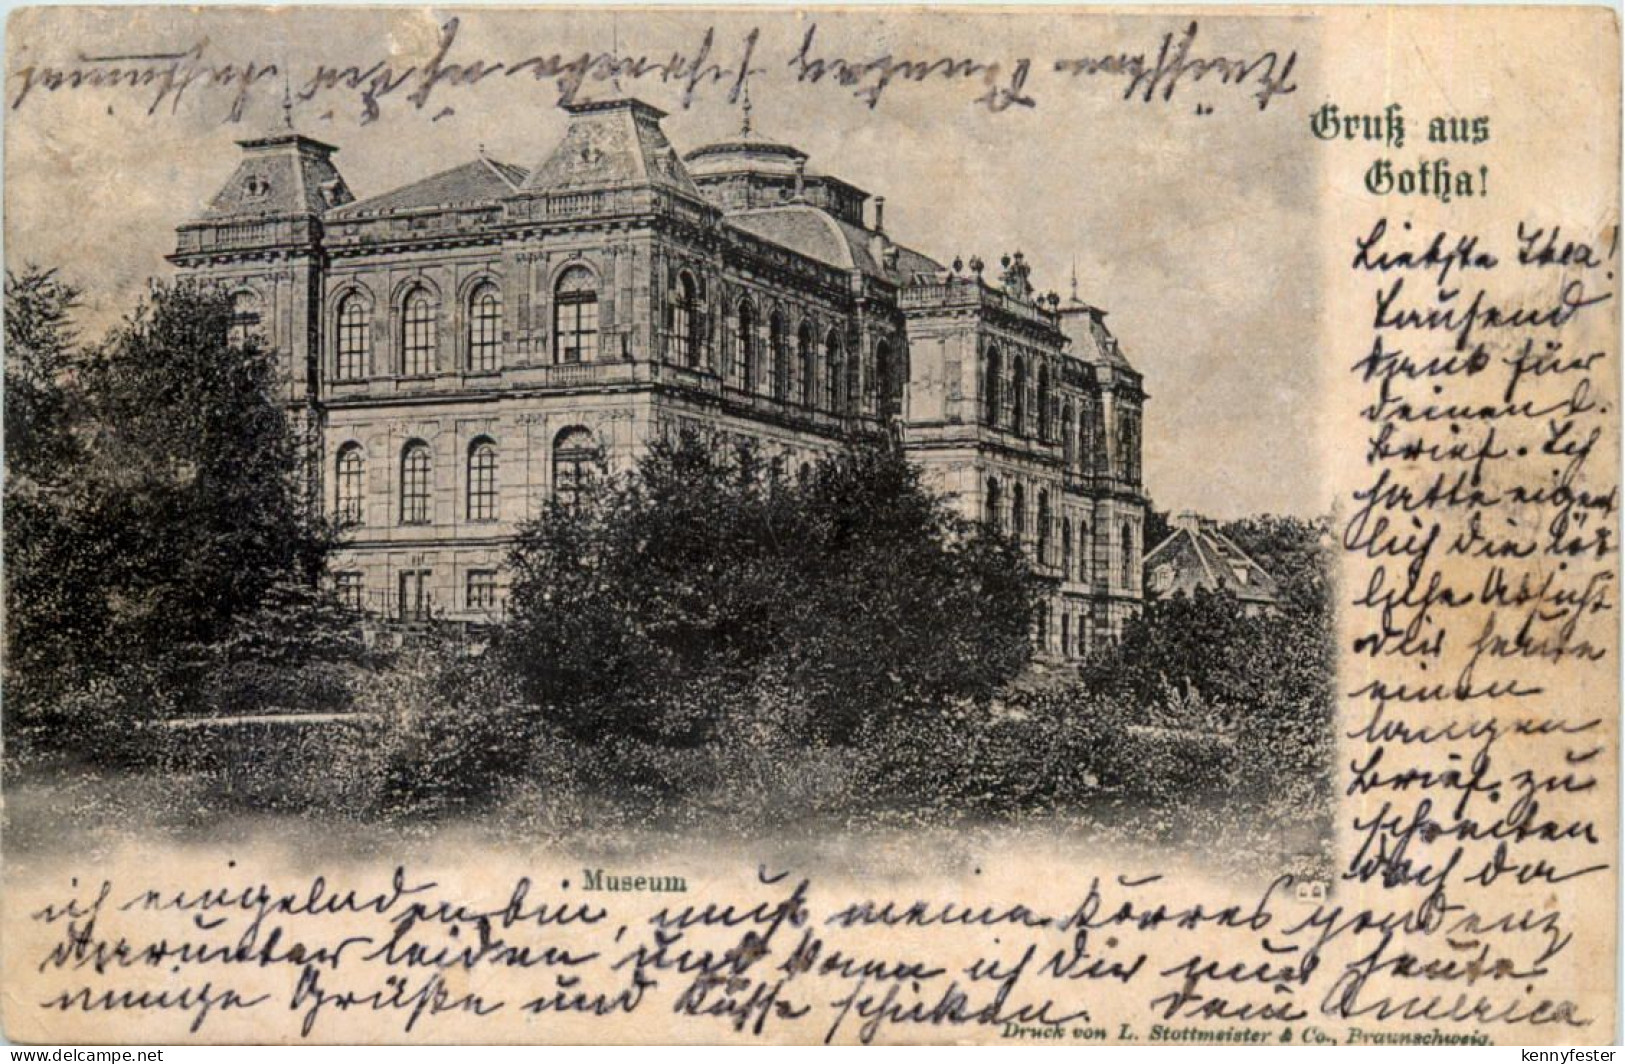 Gruß aus
Gotha!
Liebste Thea!
Tausend
Dank für
deinen l.
Brief. Ich
hatte eigent
lich die löb
liche Absicht
dir heute
einen
langen
Brief zu
schreiben
doch da
Museum
ich eingeladen bin, muß meine Korres pondenz
darunter leiden und kann ich dir nur heute
innige Grüße und Küsse schicken. Dein America
Druck von L. Stottmeister & Co., Braunschweig.
Nächsten Sonntag schreibe ich dir bestimmt
kennyfester